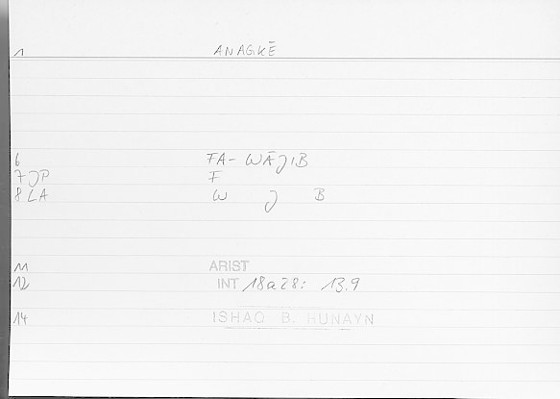 1 ANAGKĒ
6 FA- WĀJIB
7 JP F
8 LA W J B
11 ARIST
12 INT 18a28: 13.9
14 ISHAQ B. HUNAYN